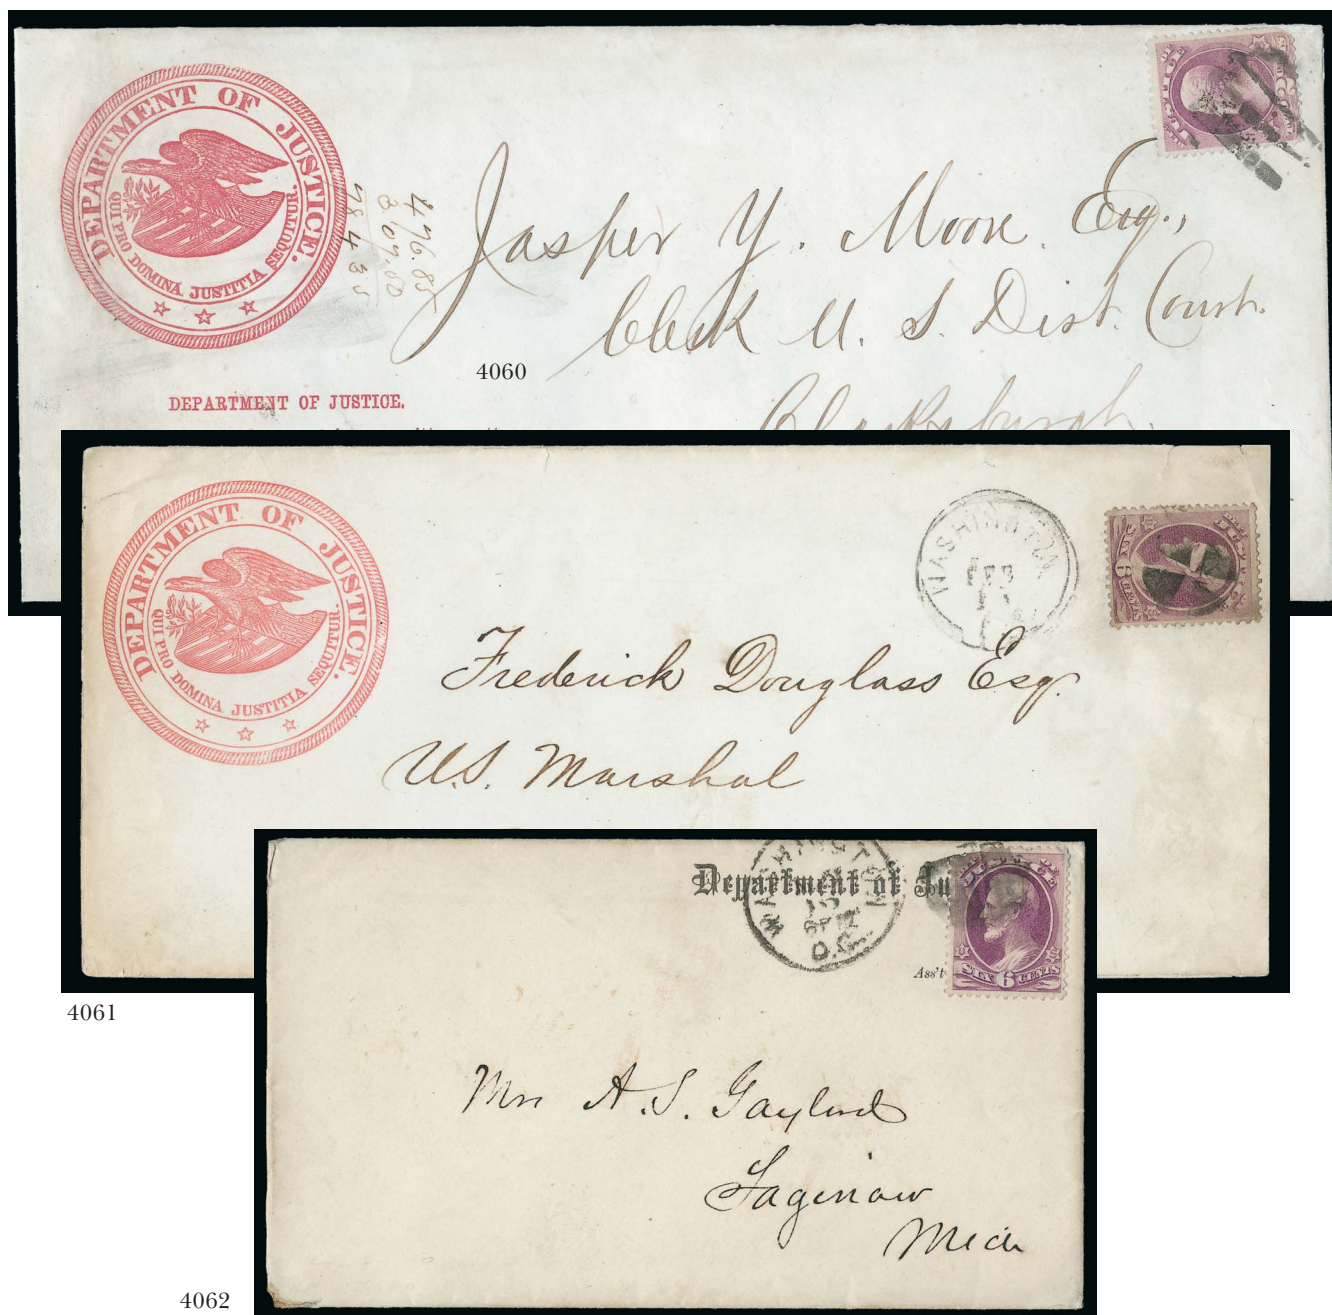 DEPARTMENT OF JUSTICE.
QUI PRO DOMINA JUSTITIA SEQUITUR.
JUSTICE
476.85
307.50
Jasper Y. Moore Esq.,
Clerk U. S. Dist. Court.
Clarksburgh.
4060
DEPARTMENT OF JUSTICE.
DEPARTMENT OF JUSTICE.
QUI PRO DOMINA JUSTITIA SEQUITUR.
WASHINGTON
FEB
6
CENTS
Frederick Douglass Esq.
U.S. Marshal
4061
Department of Ju
WASHINGTON
D.C.
Ass't
U S
SIX 6 CENTS
Mrs A. S. Gaylord
Saginaw
Mich
4062